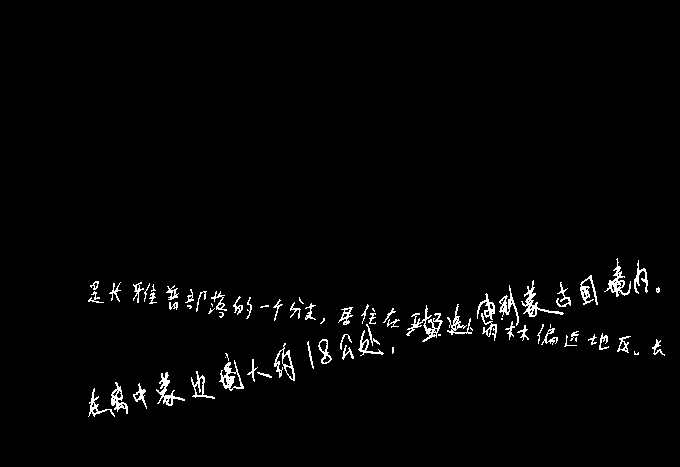 是长雅普部落的一个分支，居住在亚逊雨林偏远地区。长
在离中蒙边境大约18公处，到蒙古国境内。